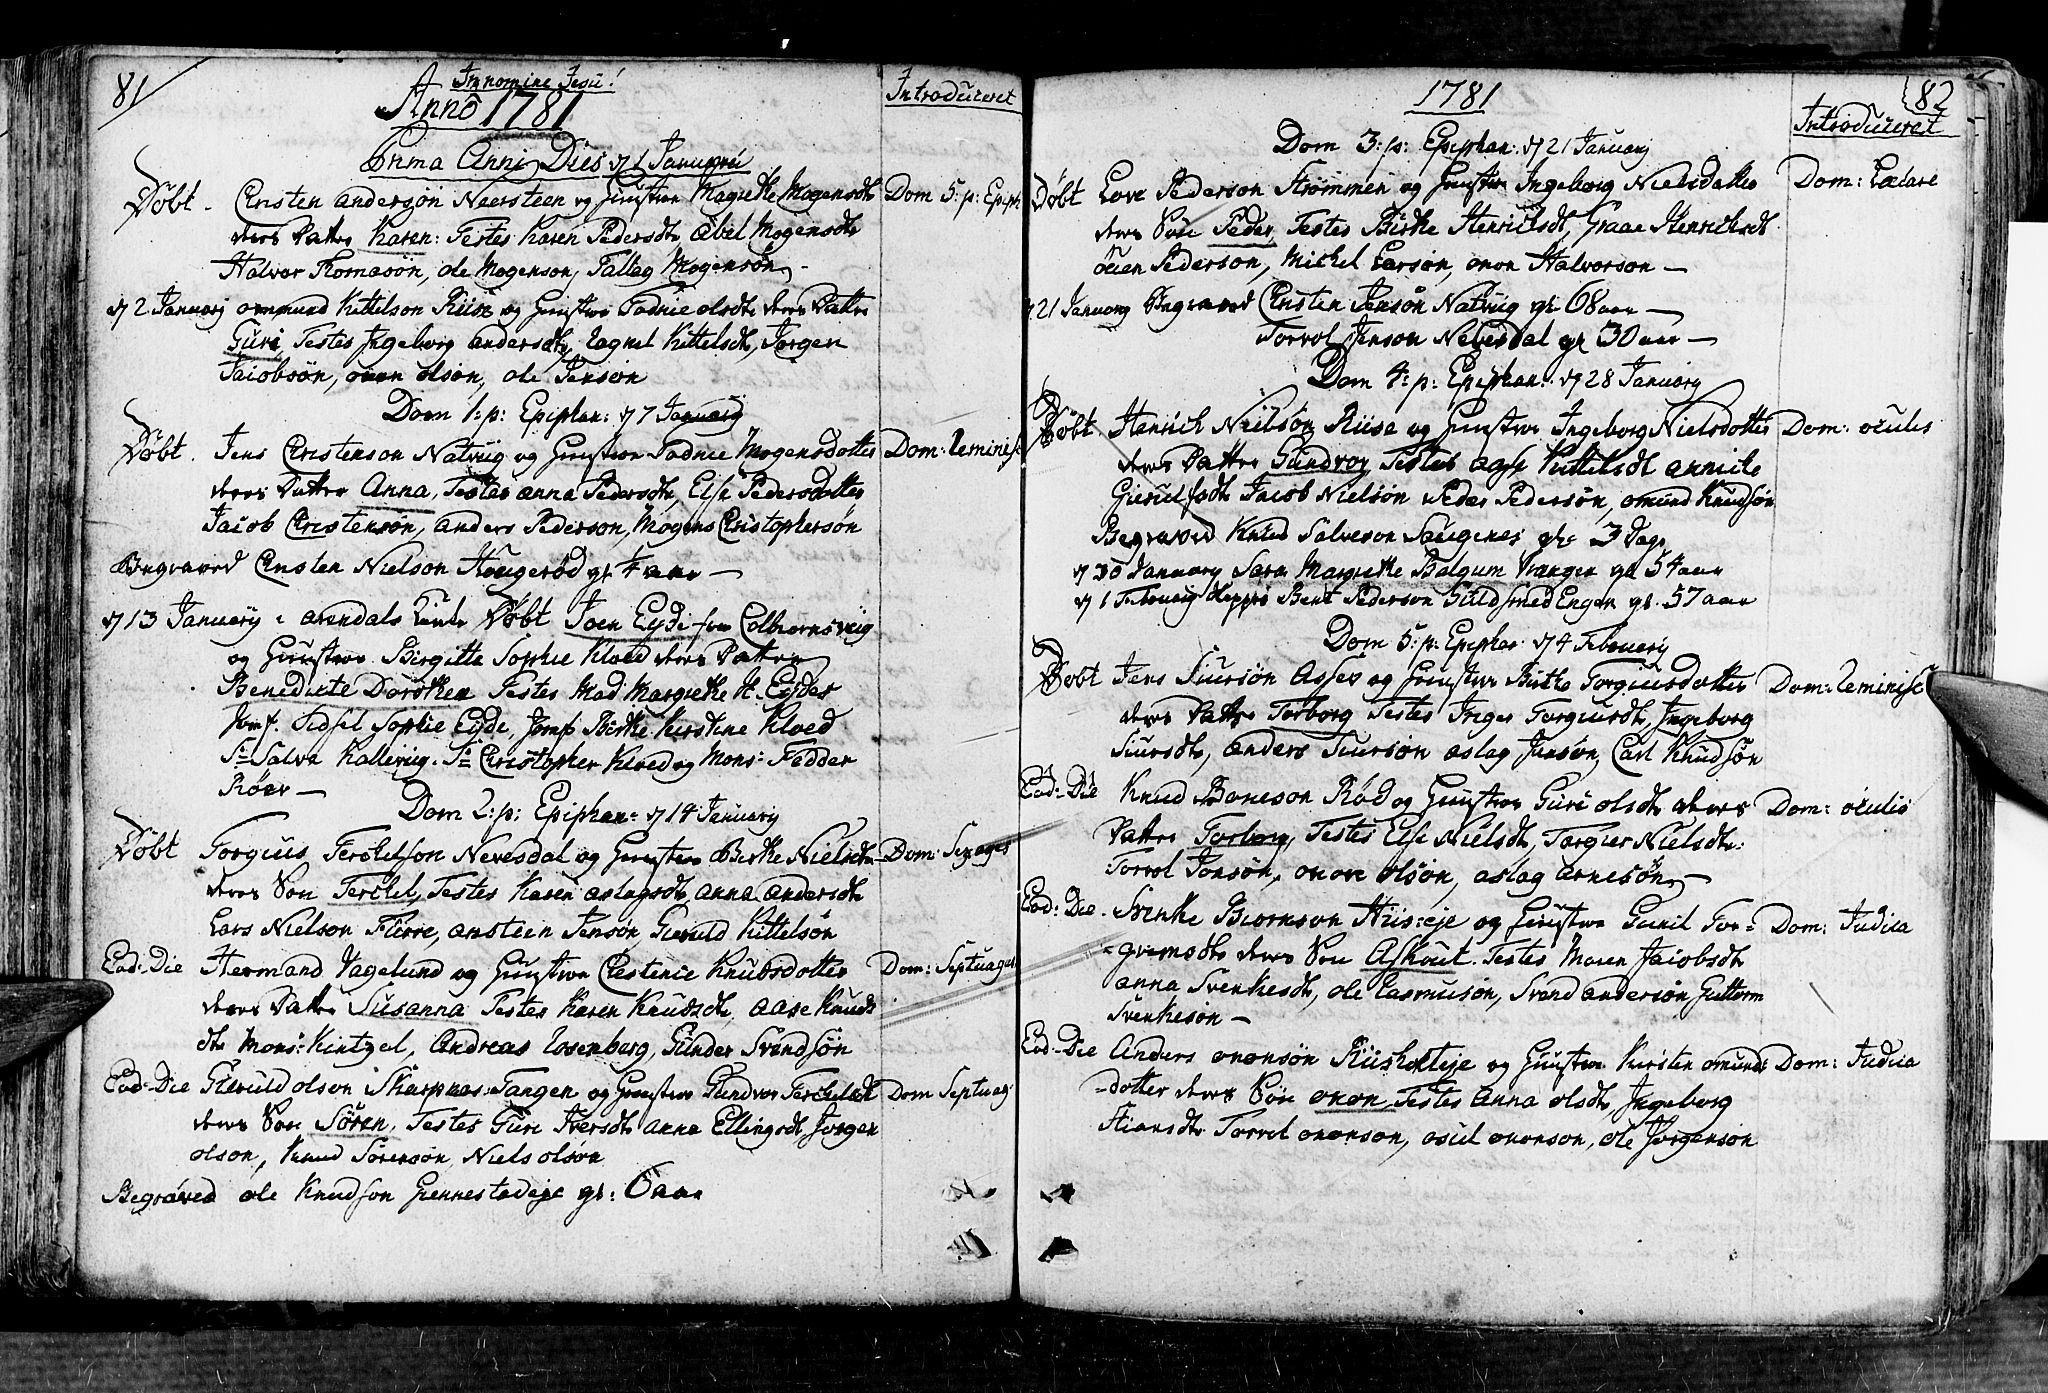 81
In nomine Jesu!
Anno 1781
Introduceret
Prima Anni Dies d 1 Januarii
Døbt Christen Andersøn Neersteen og Hustrue Magrethe Mogensdtr Dom 5: p: Epiph
deres Datter Karen: Testes Karen Pedersdtr Abel Mogensdtr
Halvor Thomasøn, Ole Mogenson, Tallag Mogensøn
d 2 January Ommund Kittelson Riise og Hustrue Tadnie Olsdtr deres Datter
Guri Testes Ingeborg Andersdtr, Ragnel Kittelsdtr, Jørgen
Jacobsøn, Onen Olsøn, Ole Jensøn
Dom 1: p: Epiphan: d 7 January
Døbt. Jens Christenson Natvig og Hustrue Tadnie Mogensdotter Dom: Reminisc
deres Datter Anna, Testes Anna Pedersdtr, Else Pedersdotter
Jacob Christensøn, Anders Pederson, Mogens Christophersøn
Begraved Christen Nielson Hougerød gl. 4 aar
d 13 January i Arendals Kirke Døbt Joen Eyde fra Colbiørnsvig
og Hustrue Birgitte Sophie Kloed deres Datter
Benedicte Dorothea Testes Mad. Margrethe H. Eydes
Jomf. Sidsel Sophie Eyde, Jomf. Birthe Kirstine Kloed
Sr Salve Kallevig. Sr Christopher Kloed og Mons: Fedder
Röer
Dom 2: p: Epiphan: d 14 January
Døbt Torgius Terchelson Nevesdal og Hustrue Birthe Nielsdtr Dom: Sexages
deres Søn Terchel, Testes Karen Aslagsdtr, Anna Andersdtr
Lars Nielson Flerre, Ansteen Jensøn, Gieruld Kittelsøn
Ead: Die Hermand Vagelund og Hustrue Chestenie Knudsdotter Dom: Septuages
deres Datter Susanna Testes Karen Knudsdtr, Aase Knuds
dtr Mons: Kintzel, Andreas Rosenberg, Gunder Svendsøn
Ead: Die Gieruld Olson Skarpnes Tangen og Hustrue Gundvor Terchelsdtr Dom Septuag:
deres Søn Søren, Testes Guri Iversdtr Anna Ellingsdtr, Jørgen
Olson, Knud Sørensøn, Niels Olsøn
Begraved Ole Knudson Gennestadeje gl: 6 aar
1781
82
Introduceret
Dom 3: p: Epiphan: d 21 January
Døbt Love Pederson Strømmen og Hustrue Ingeborg Nielsdatter Dom: Lætare
deres Søn Peder, Testes Birthe Henrichsdtr, Graae Henrichsdtr
Ouen Pederson, Michel Larsøn, Onon Halvorson
d 21 January Begraved Christen Jensøn Natvig gl 68 aar
Torrol Jenson Nevesdal gl 30 aar
Dom 4: p: Epiphan: d 28 January
Døbt. Henrich Nielson Riise og Hustrue Ingeborg Nielsdotter Dom: Oculis
deres Datter Gundvor Testes Aase Kittelsdtr Anniche
Gierulfsdtr Jacob Nielson Peder Pedersøn, Omund Knudsøn
Begraved Knud Salveson Saugenes gl. 3 Dage
d 30 January Sara Margrethe Balgum Vrangen gl 54 aar
d 1 Februarij Bent Pederson Guldsmed Engen gl. 57 aar
Dom 5: p: Epiphan: d 4 February
Døbt Jens Siursøn Asses og Hustrue Birthe Torgiusdotter Dom: Reminisc
deres Datter Torborg Testes Inger Torgiusdtr, Ingeborg
Siursdtr, Anders Siursøn Aslag Jensøn, Carl Knudsøn
Ead: Die Knud Boneson Rød og Hustrue Guri Olsdtr deres Dom: Oculis
Datter Torborg, Testes Else Nielsdtr, Torgier Nielsdtr:
Torrol Jonsøn, Onon Olsøn, Aslag Arnesøn,
Ead: Die. Svenke Biørnson Hiis-eje og Hustrue Gunil Tor= Dom: Judica
=gremsdtr deres Søn Askout. Testes Maren Jacobsdtr
Anna Svenkesdtr, Ole Rasmusøn, Svend Andersøn, Guttorm
Svenkesøn
Ead: Die Anders Ononsøn Riisholteje og Hustrue Kirsten Omunds Dom: Judica
=dotter deres Søn Onon, Testes Anna Olsdtr, Ingeborg
Stiansdtr Torrel Ononson, Osul Ononson, Ole Jørgenson